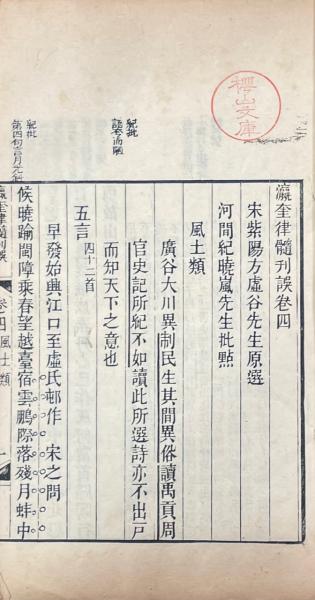 瀛奎律髓刊誤卷四
宋紫陽方虛谷先生原選
河間紀曉嵐先生批點
風土類
廣谷大川異制民生其間異俗讀禹貢周
官史記所紀不如讀此所選詩亦不出戶
而知天下之意也
五言四十二首
早發始興江口至虛氏邨作 宋之問
候曉踰閩障乘春望越臺宿雲鵬際落殘月蚌中
瀛奎律髓刊誤 卷四風土類 一
紀批
語夸而陋
紀批
第四句言月
樱山文庫